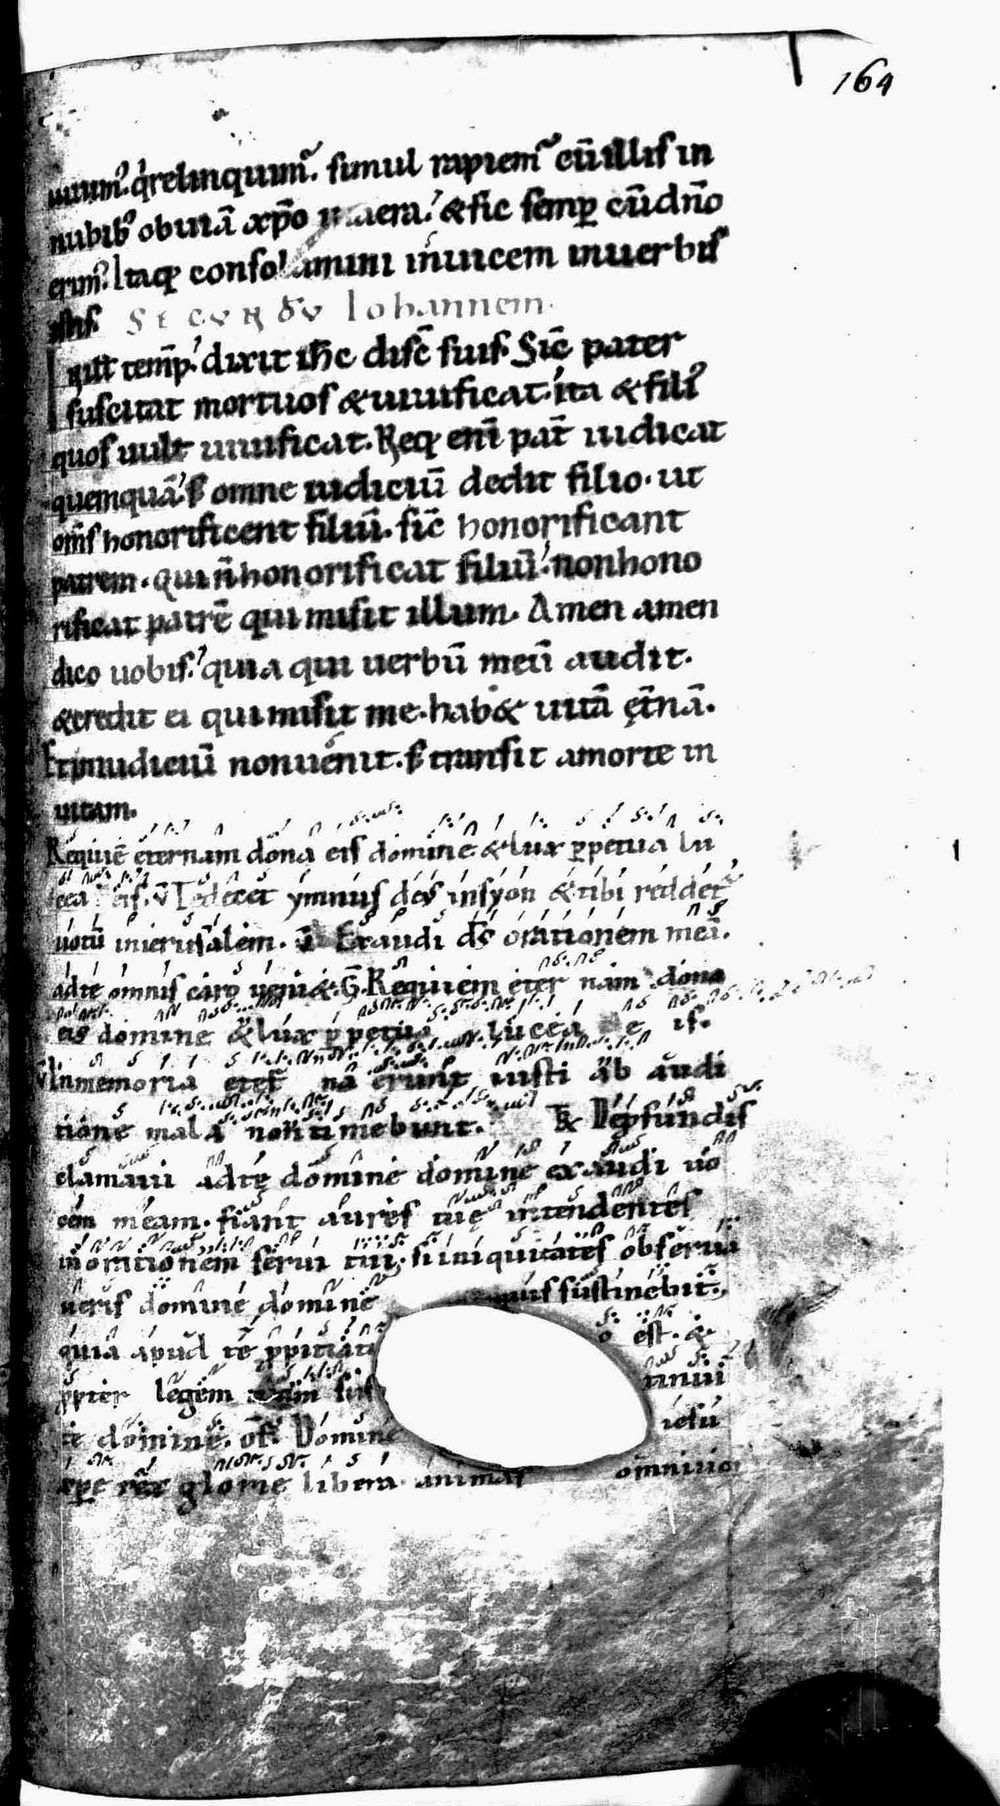 164
uiuim᷒. q̇relinquim᷒. simul rapiem᷒ cū illis in
nubib᷒ obuiā xp̄o in aera. & sic semꝑ cū dn̄o
erim᷒. Itaq; consolamini inuicem in uerbis
istis. SECVNDV Iohannem.
In ill̄ temp̄. dixit ih̄c disc̄ suis. Sic̄ pater
suscitat mortuos & uiuificat. ita & fili᷒
quos uult uiuificat. Neq; eni pat̄ iudicat
quemquā. s̄ omne iudiciū dedit filio. ut
om̄s honorificent filiū. sic̄ honorificant
patrem. qui n̄ honorificat filiū. non hono
rificat patrē qui misit illum. Amen amen
dico uobis. quia qui uerbū meū audit.
& credit ei qui misit me. hab& uitā ęt̄nā.
Et in iudiciū non uenit. s̄ transit a morte in
uitam.
Requiē eternam dona eis domine & lux ꝑpetua lu
cea eis. v̄ Te decet ymnus deus in syon & tibi reddet᷒
uotū in ierusalem. Exaudi ds̄ orationem meā.
ad te omnis caro ueni&. G̅. Requiem eter nam dona
eis domine & lux ꝑpetua lucea e is.
v̄ In memoria eter na erunt iusti ab audi
tione mala non timebunt. De ꝓfundis
clamaui ad te domine domine exaudi uo
cem meam. fiant aures tuę intendentes
in orationem serui tui. si iniquitates obserua
ueris domine domine quis sustinebit.
quia apud te ꝓpitiat o est. &
ꝓpter legem tuam sus tinui
te domine. of̄. Domine iesu
xp̄e rex glorie libera animas omnium